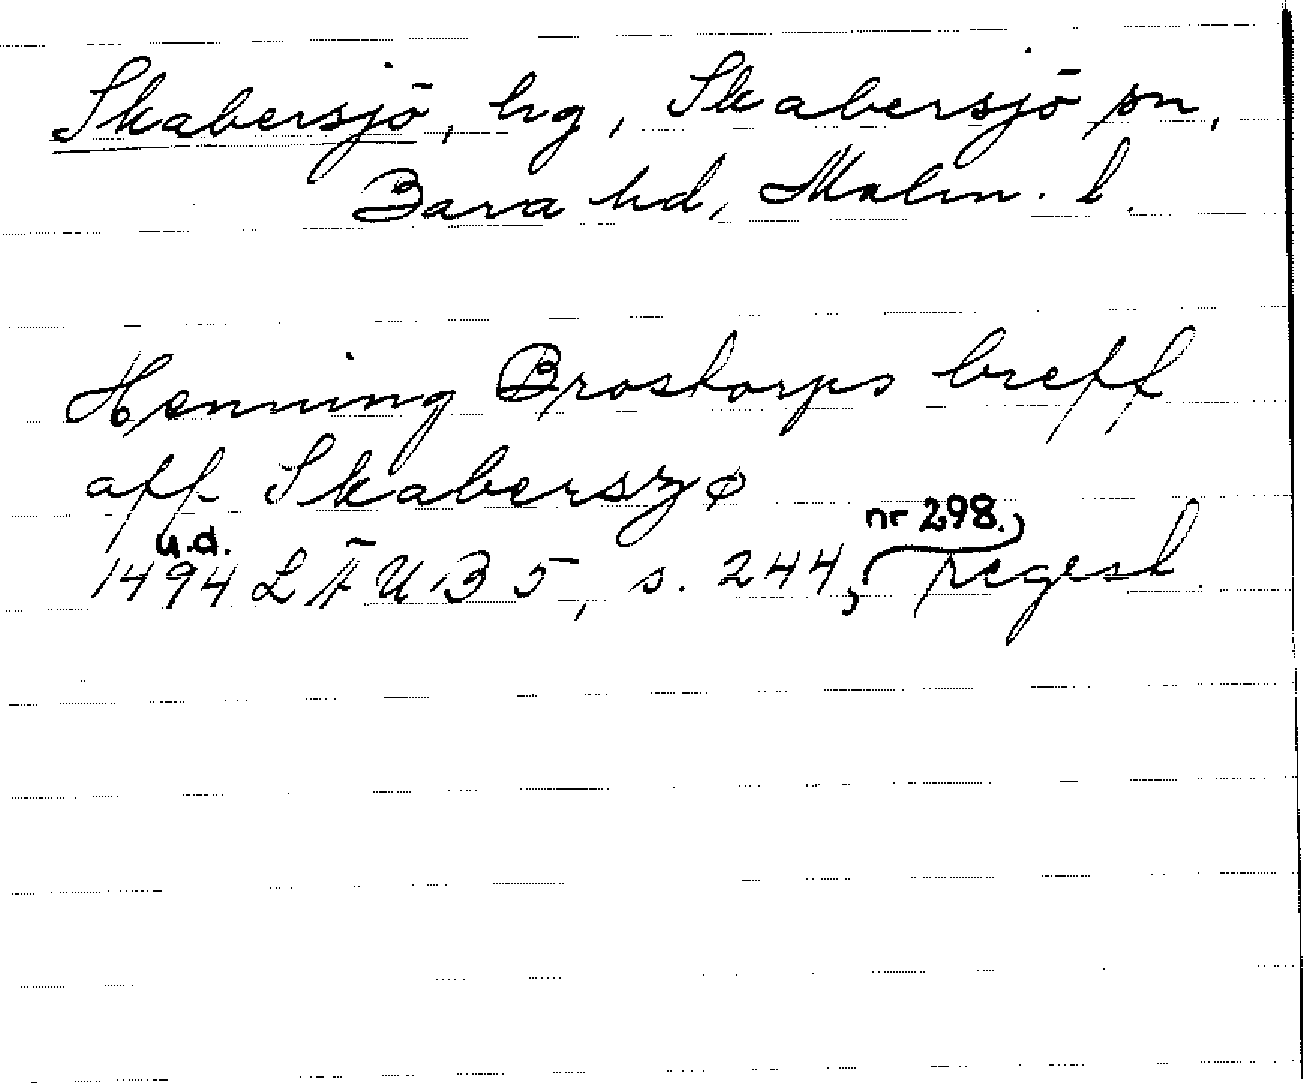 Skabersjö, hg, Skabersjö sn,
Bara hd, Malm. l.
Henning Brostorps breff
aff Skaberszø
u.d. nr 298.
1494 LÄUB 5, s. 244, regest.